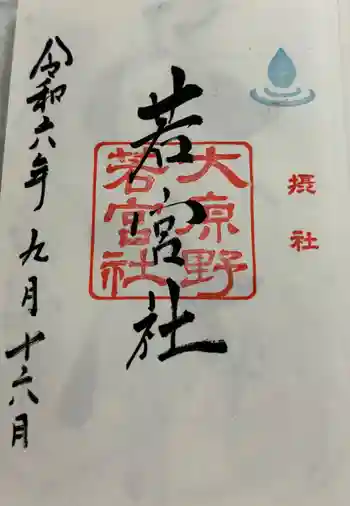 摂社
大原野
若宮社
若宮社
令和六年九月十六月